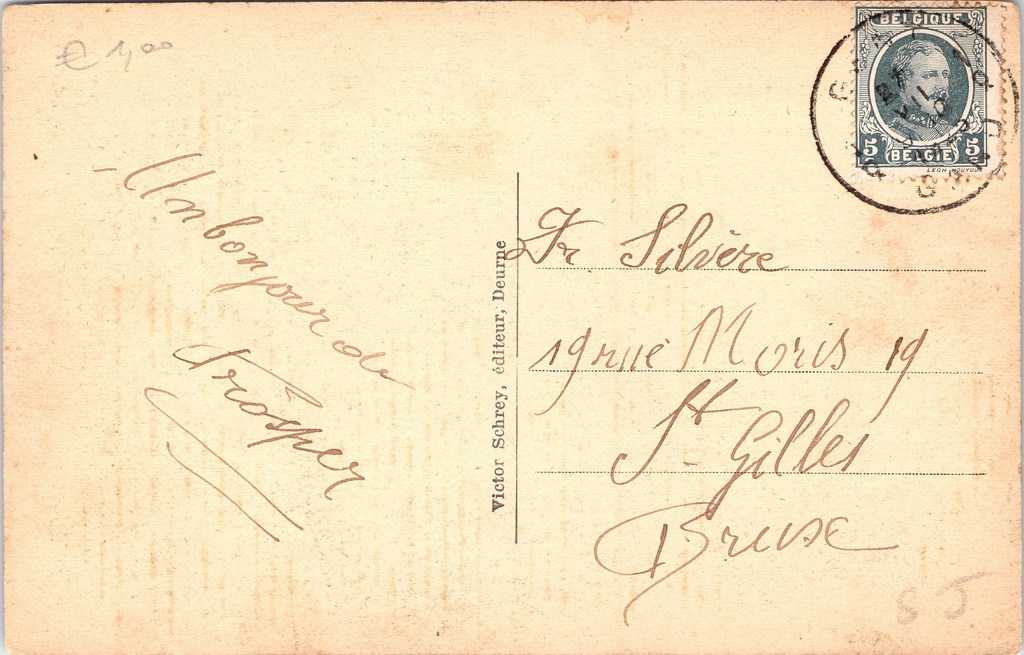 € 1,00
BELGIQUE
5 BELGIË 5
LEON HOUYOUX
Un bonjour de
Prosper
Victor Schrey, éditeur, Deurne
Fr. Silvère
19 rue Moris 19
St Gilles
Brux
S J